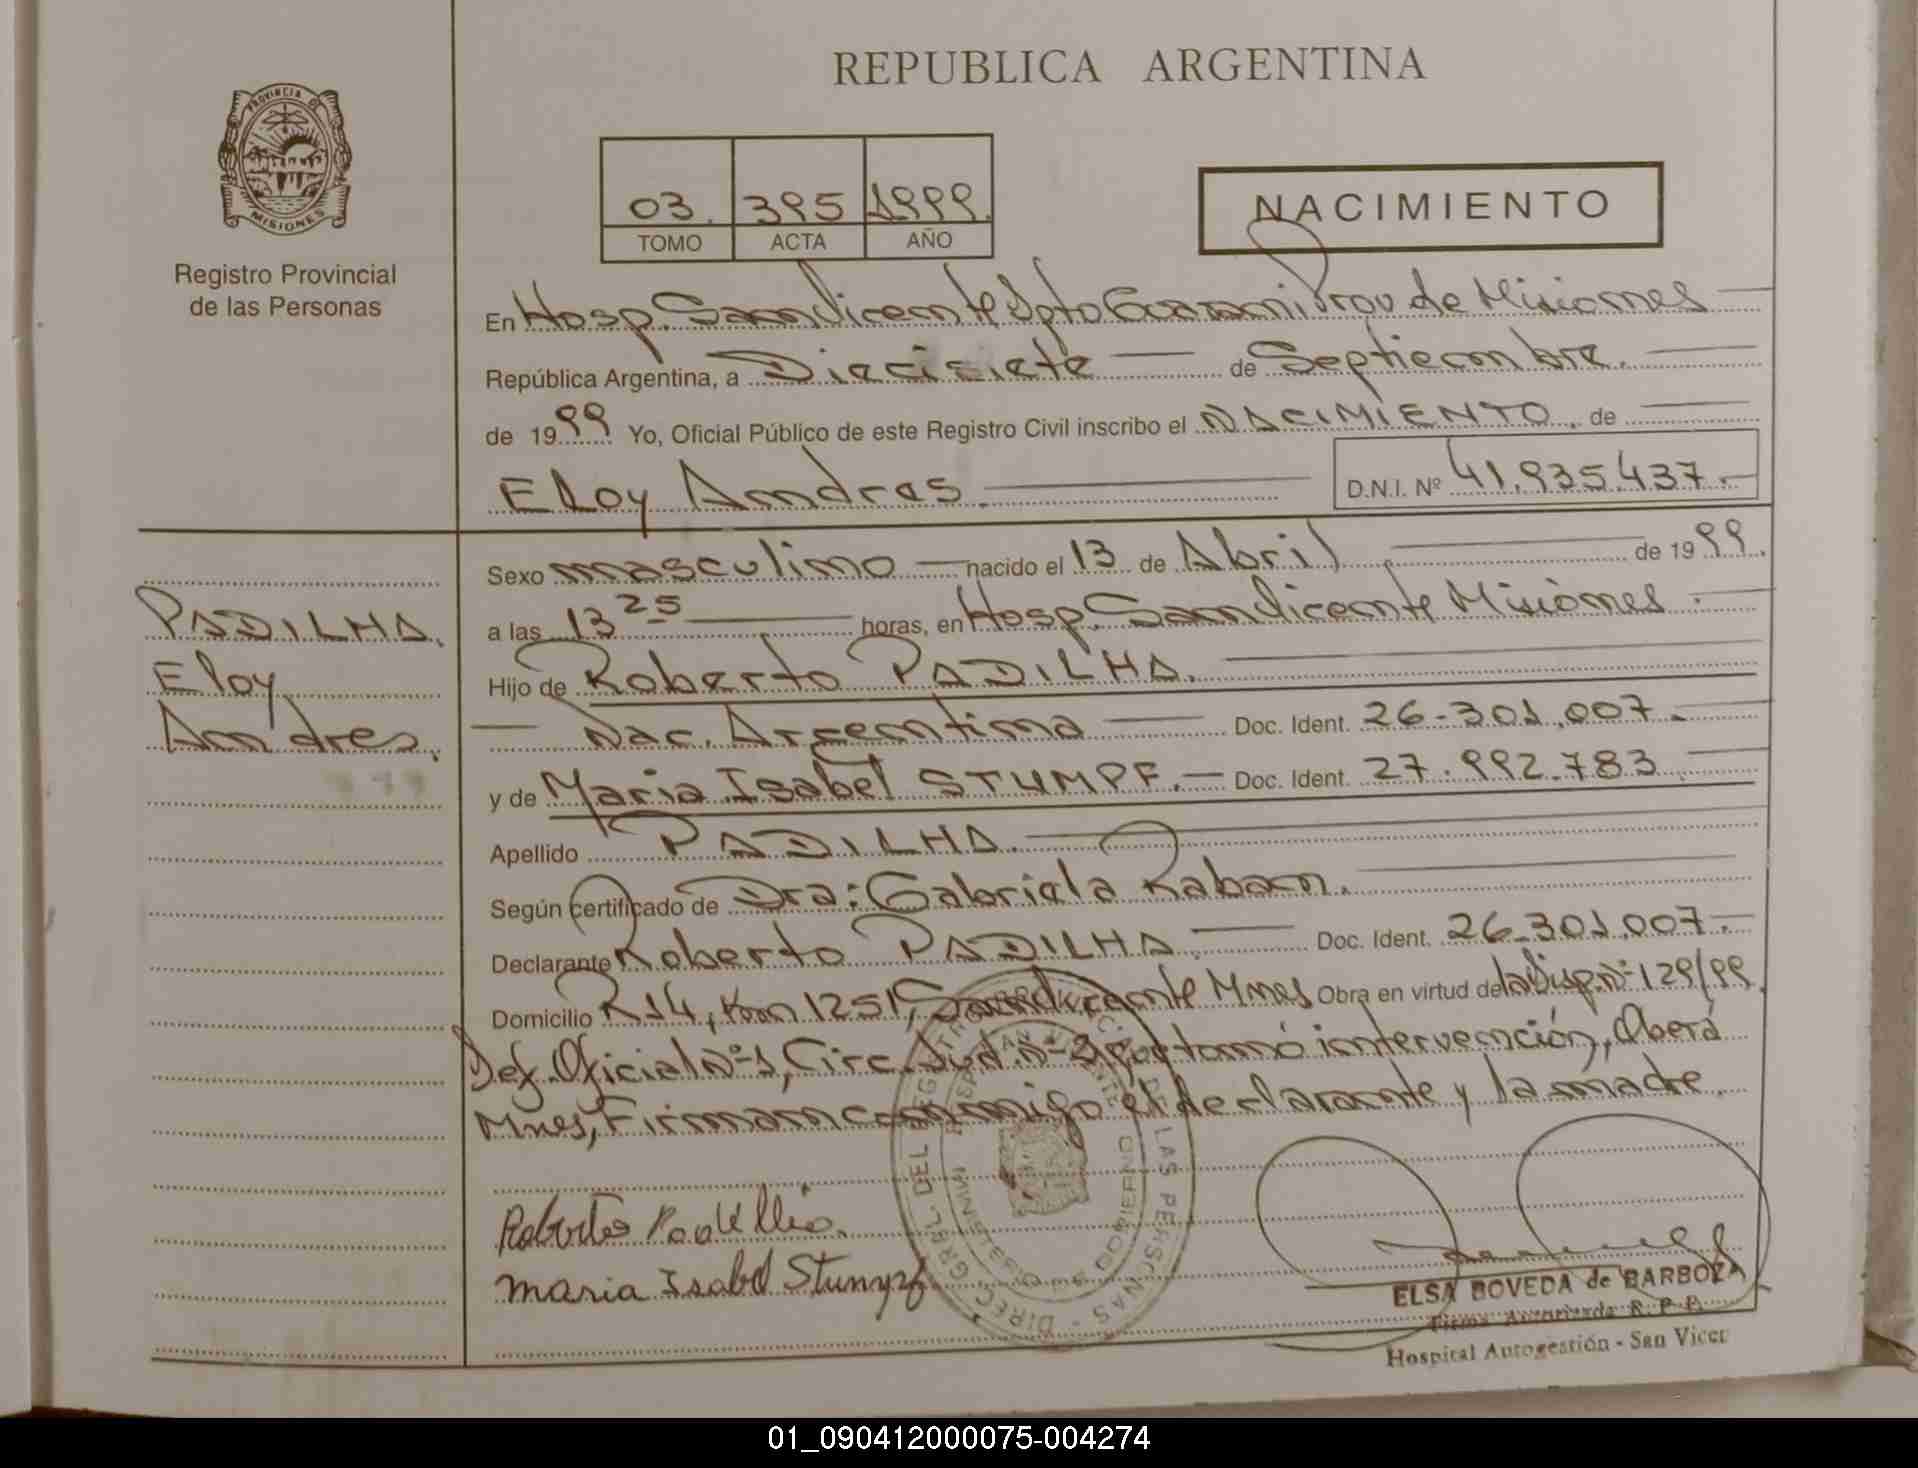 REPUBLICA ARGENTINA
PROVINCIA DE
MISIONES
Registro Provincial
de las Personas
03. 395 1999.
TOMO ACTA AÑO
NACIMIENTO
En Hosp. San Vicente Dpto Guarani Prov de Misiones
República Argentina, a Diecisiete de Septiembre.
de 1999 Yo, Oficial Público de este Registro Civil inscribo el NACIMIENTO. de
Eloy Andres.
D.N.I. Nº 41.935.437.-
PADILHA,
Eloy
Andres.
Sexo masculino nacido el 13 de Abril de 1999.
a las 13 25 horas, en Hosp. San Vicente Misiones.
Hijo de Roberto PADILHA.
Nac. Argentina Doc. Ident. 26-301.007.-
y de Maria Isabel STUMPF.- Doc. Ident. 27.992.783.
Apellido PADILHA.
Según certificado de Dra: Gabriela Raban.
Declarante Roberto PADILHA. Doc. Ident. 26-301.007.-
Domicilio R14, km 1251, San Vicente Mnes Obra en virtud de la Disp. Nº 129/99.
Def. Oficial Nº 1, Circ. Jud. Nº que tomó intervención, Oberá
Mnes, Firman conmigo el declarante y la madre.
Roberto Padillia.
maria Isabel Stumpf.
DIREC. GRAL. DEL REGISTRO PROVINC. DE LAS PERSONAS
MINISTERIO GOBIERNO
ELSA BOVEDA de BARBOZA
Firma Autorizada R. P. P.
Hospital Autogestión - San Vicen
01_090412000075-004274